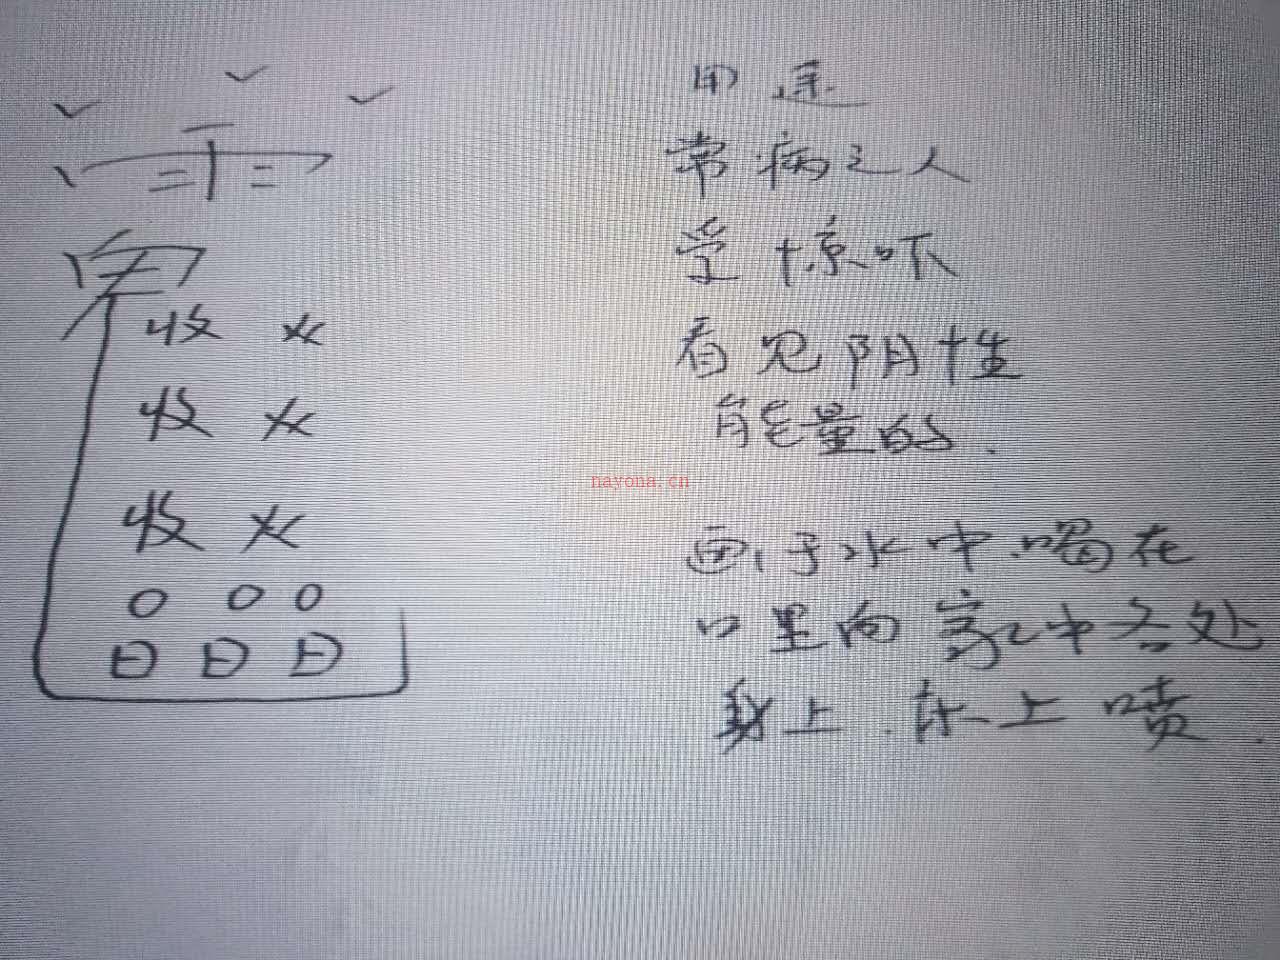 用途
常病之人
受惊吓
看见阴性
能量的.
画于水中.喝在
口里向家中各处
身上.床上喷.
收
收
收
nayona.cn